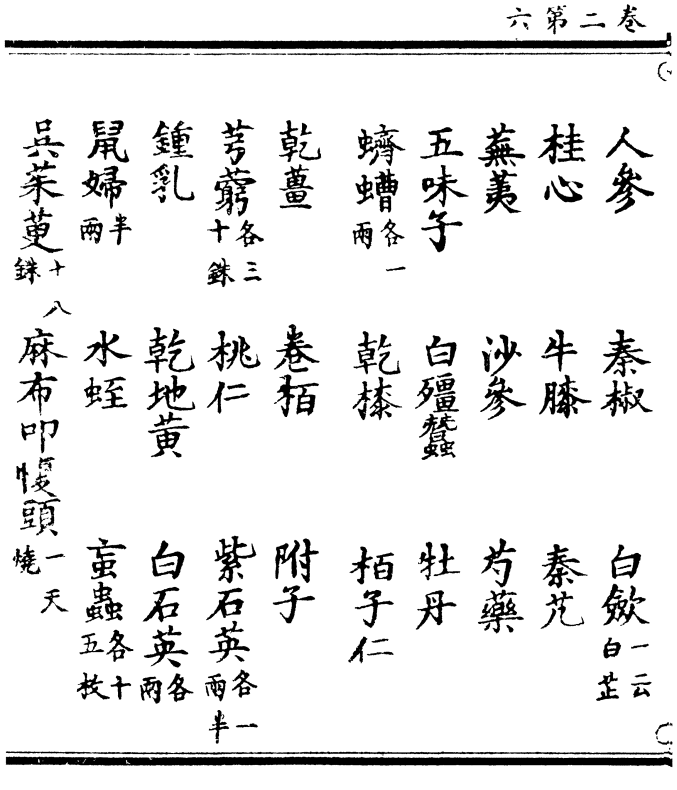 卷二第六
人參　秦椒　白斂一云白芷
桂心　牛膝　秦艽
蕪荑　沙參　芍藥
五味子　白殭蠶　牡丹
蠐螬各一兩　乾漆　栢子仁
乾薑　卷栢　附子
芎藭各三十銖　桃仁　紫石英各一兩半
鍾乳　乾地黃　白石英各兩
鼠婦半兩　水蛭　䖟蟲各十五枚
吳茱萸十八銖　麻布叩愎頭一天燒